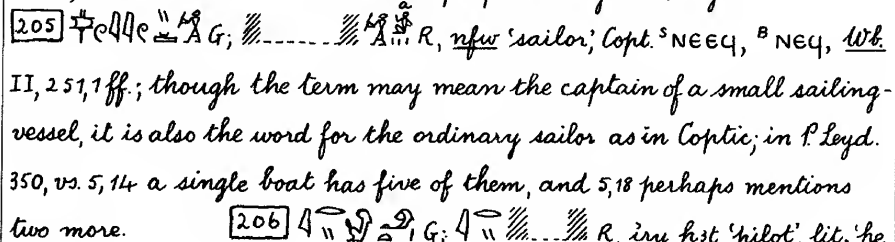 205 G; R, nfw 'sailor'; Copt. ˢⲛⲉⲉϥ, ᴮⲛⲉϥ, Wb.
II, 251, 1 ff.; though the term may mean the captain of a small sailing-
vessel, it is also the word for the ordinary sailor as in Coptic; in P. Leyd.
350, vs. 5, 14 a single boat has five of them, and 5, 18 perhaps mentions
two more. 206 G; R, iry ḥꜣt 'pilot', lit. 'he